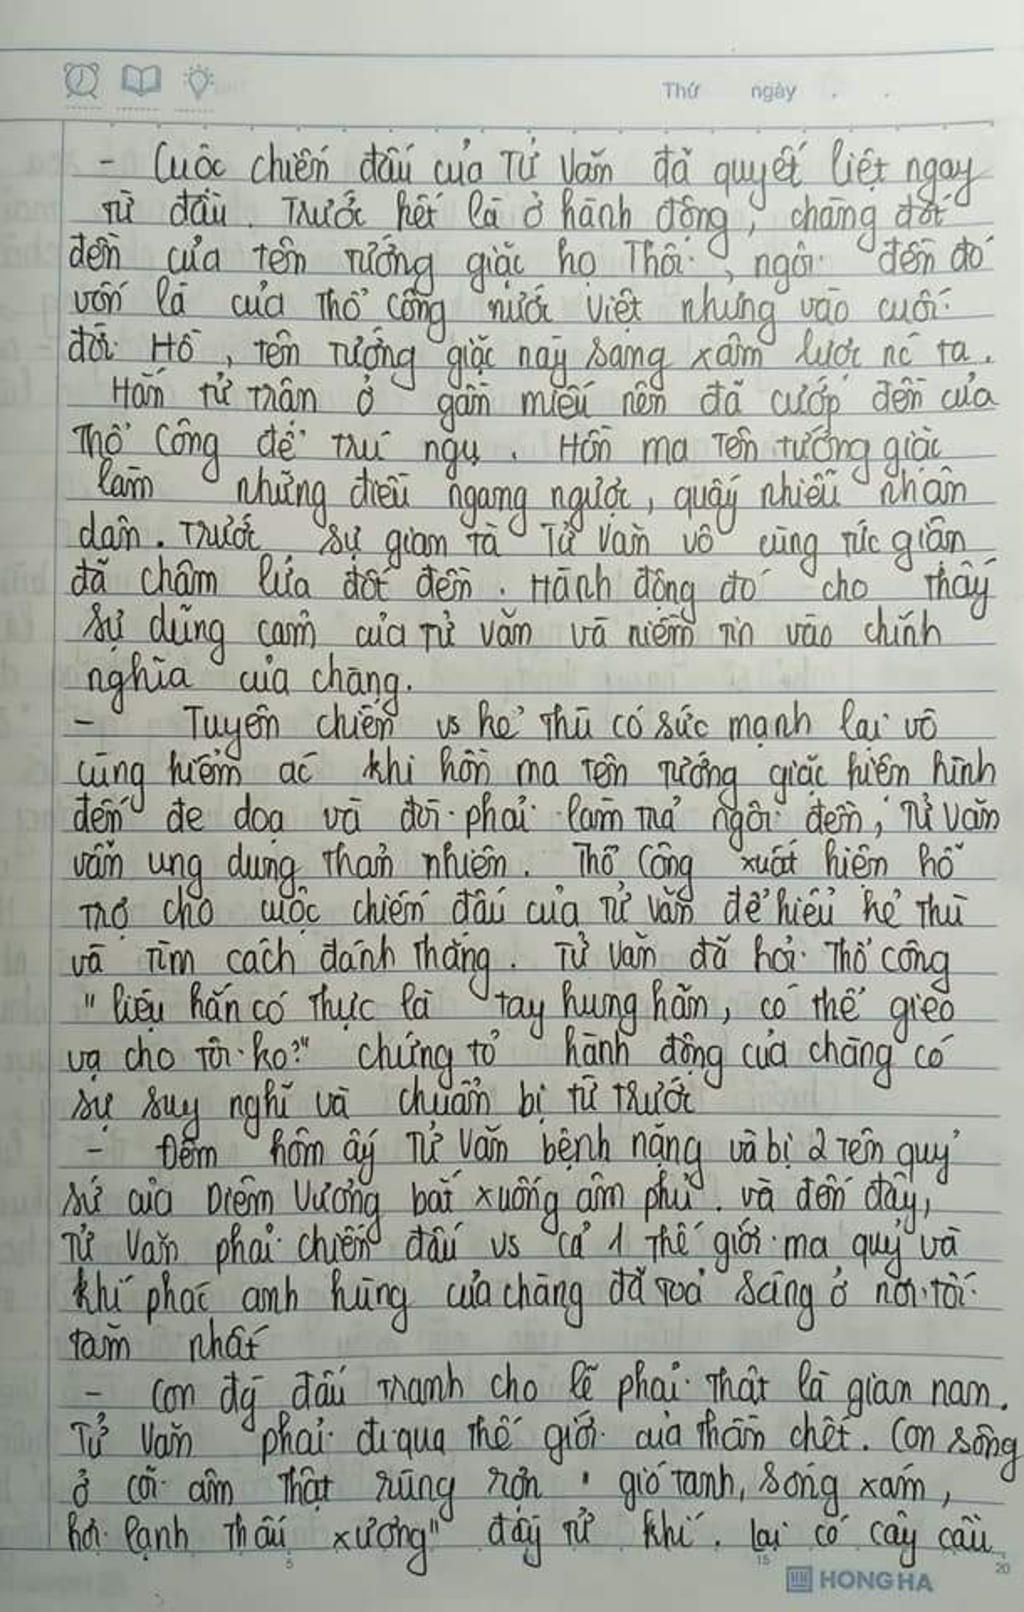 Thứ ngày
- Cuộc chiến đấu của Tử Văn đã quyết liệt ngay
từ đầu. Trước hết là ở hành động, chàng đốt
đền của tên tướng giặc họ Thôi, ngôi đền đó
vốn là của Thổ Công nước Việt nhưng vào cuối
đời Hồ, tên tướng giặc này sang xâm lược nc ta.
Hắn tử trận ở gần miếu nên đã cướp đền của
Thổ Công để trú ngụ. Hồn ma tên tướng giặc
làm những điều ngang ngược, quấy nhiễu nhân
dân. Trước sự gian tà Tử Văn vô cùng tức giận
đã châm lửa đốt đền. Hành động đó cho thấy
sự dũng cảm của Tử Văn và niềm tin vào chính
nghĩa của chàng.
- Tuyên chiến vs kẻ thù có sức mạnh lại vô
cùng hiểm ác khi hồn ma tên tướng giặc hiện hình
đến đe doạ và đòi phải làm trả ngôi đền, Tử Văn
vẫn ung dung thản nhiên. Thổ Công xuất hiện hỗ
trợ cho cuộc chiến đấu của Tử Văn để hiểu kẻ thù
và tìm cách đánh thắng. Tử Văn đã hỏi Thổ Công
"liệu hắn có thực là tay hung hãn, có thể gieo
vạ cho tôi ko?" chứng tỏ hành động của chàng có
sự suy nghĩ và chuẩn bị từ trước
- Đêm hôm ấy Tử Văn bệnh nặng và bị 2 tên quỷ
sứ của Diêm Vương bắt xuống âm phủ. và đến đây,
Tử Văn phải chiến đấu vs cả 1 thế giới ma quỷ và
khí phách anh hùng của chàng đã toả sáng ở nơi tối
tăm nhất
- Con đg đấu tranh cho lẽ phải thật là gian nan.
Tử Văn phải đi qua thế giới của thần chết. Con sông
ở cõi âm thật rùng rợn " gió tanh, sóng xám,
hơi lạnh thấu xương" đầy tử khí. Lại có cây cầu
5 15 20
HONG HA